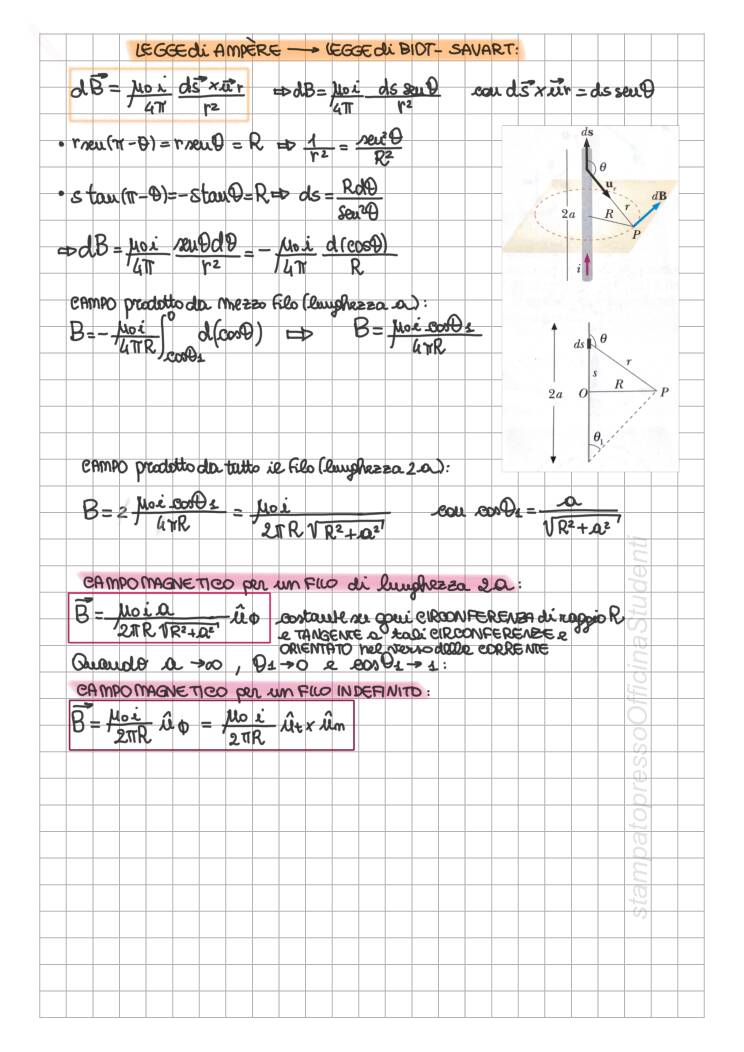 LEGGE di AMPÈRE → LEGGE di BIOT-SAVART:
dB⃗ = μ₀i/4π ds⃗ × u⃗r/r² ⇒ dB = μ₀i/4π ds senθ/r² con ds⃗ × u⃗r = ds senθ
• r sen(π-θ) = r senθ = R ⇒ 1/r² = sen²θ/R²
• s tan(π-θ) = -s tanθ = R ⇒ ds = Rdθ/sen²θ
⇒ dB = μ₀i/4π senθdθ/r² = - μ₀i/4π d(cosθ)/R
CAMPO prodotto da mezzo filo (lunghezza a):
B = - μ₀i/4πR ∫_cosθ₁^0 d(cosθ) ⇒ B = μ₀i cosθ₁/4πR
ds
θ
uᵣ
dB
2a
R
r
P
i
ds
θ
r
s
2a
O
R
P
θ₁
CAMPO prodotto da tutto il filo (lunghezza 2a):
B = 2 μ₀i cosθ₁/4πR = μ₀i/2πR √R²+a² con cosθ₁ = a/√R²+a²
CAMPO MAGNETICO per un FILO di lunghezza 2a:
B⃗ = μ₀ i a/2πR √R²+a² ûϕ costante su ogni CIRCONFERENZA di raggio R
e TANGENTE a tali CIRCONFERENZE e
ORIENTATO nel verso delle CORRENTE
Quando a → ∞, θ₁ → 0 e cosθ₁ → 1:
CAMPO MAGNETICO per un FILO INDEFINITO:
B⃗ = μ₀i/2πR ûϕ = μ₀i/2πR ût × ûn
stampatopressoOfficinaStudenti